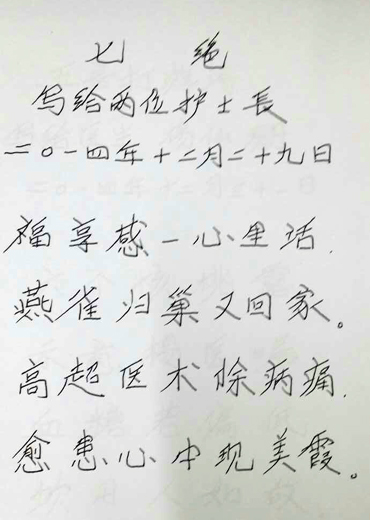 七 绝
写给两位护士長
二〇一四年十二月二十九日
福享感一心里话,
燕雀归巢又回家。
高超医术除病痛,
愈患心中现美霞。